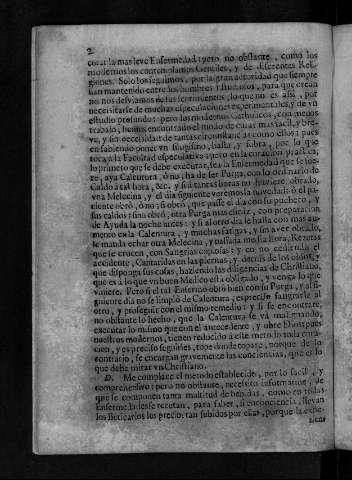 2
curar la mas leve Enfermedad: pero no obstante, como los
modernos los contemplamos Gentiles, y de diferentes Reli-
giones. Solo los seguimos, por la gran autoridad que siempre
han mantenido entre los hombres: y nosotros, para que crean
no nos desviamos de sus documentos, lo que no es assi, por
necessitarse de muchas especulaciones experimentales, y de vn
estudio profundo: pero los modernos Catholicos, con menos
trabajo, hemos encontrado el modo de curar mas facil, y bre-
ve, y sin necessidad de tantas circunstancias como ellos: pues
en sabiendo poner vn sangrino, basta, y sobra, por lo que
toca à la Facultad especulativa: pero en la curacion practica,
lo primero que se debe executar, sea la Enfermedad que se fue-
re, aya Calentura, ò no, ha de ser Purga, con lo ordinario de
Caldo à tal hora, &c. y si à tantas horas no huviere obrado,
vna Melecina, y el dia siguiente veremos la novedad: si el pa-
ciente obrò, ò no; si obrò, que passe el dia con su puchero, y
sus caldos: si no obrò, otra Purga mas eficaz, con preparacion
de Ayuda la noche antes: y si al otro dia le halla con mas au-
mento en la Calentura, y muchas fatigas, y sin aver obrado,
le manda echar otra Melecina, y passada media hora, Recetas
que se crucen, con Sangrias copiosas: y en no cediendo el
accidente, Cantaridas en las piernas; y detràs de los oidos, y
que disponga sus cosas, haziendo las diligencias de Christiano,
que es à lo que vn buen Medico està obligado, y venga lo que
viniere. Pero si el tal Enfermo obrò bien con su Purga, y al si-
guiente dia no se limpiò de Calentura, es preciso sangrarle al
otro, y proseguir con el mismo remedio: y si se encontrare,
no obstante lo hecho, que la Calentura se và malignando,
executar lo mismo que con el antecedente, y obre Dios: pues
nuestros modernos, tienen reducido à este metodo toda cura-
cion, y es preciso seguirles, tope donde topare, porque de lo
contrario, se encargan gravemente las conciencias, que es lo
que debe mirar vn Christiano.
D. Me complace el metodo establecido, por lo facil, y
comprehensivo: pero no obstante, necessito informarme, de
que se componen tanta multitud de bebidas, como en todas
Enfermedades se recetan, para saber, si en conciencia, llevan
los Boticarios los precios tan subidos por ellas, porque la expe-
rien-